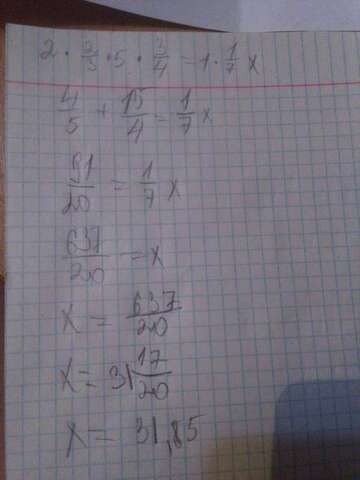 2 · 2/5 · 5 · 3/4 = 1 · 1/7 x
4/5 + 15/4 = 1/7 x
91/20 = 1/7 x
637/20 = x
x = 637/20
x = 31 17/20
x = 31,85